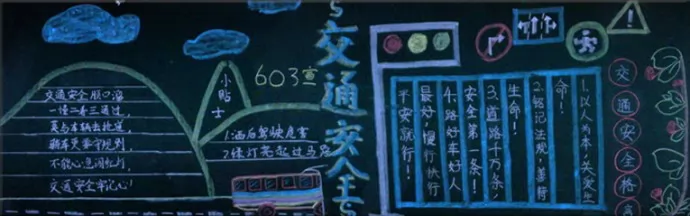 交通安全顺口溜
一慢二看三通过,
莫与车辆去抢道,
骑车更要守规则,
不能心急闯红灯,
交通安全牢记心!
小贴士
603宣
1.酒后驾驶危害
2.绿灯亮起过马路
交通安全
1.以人为本,关爱生
命!
2.铭记法规,善待
生命!
3.道路千万条,
安全第一条!!
4.路好车好人
最好,慢行快行
平安就行!!
交通安全格言